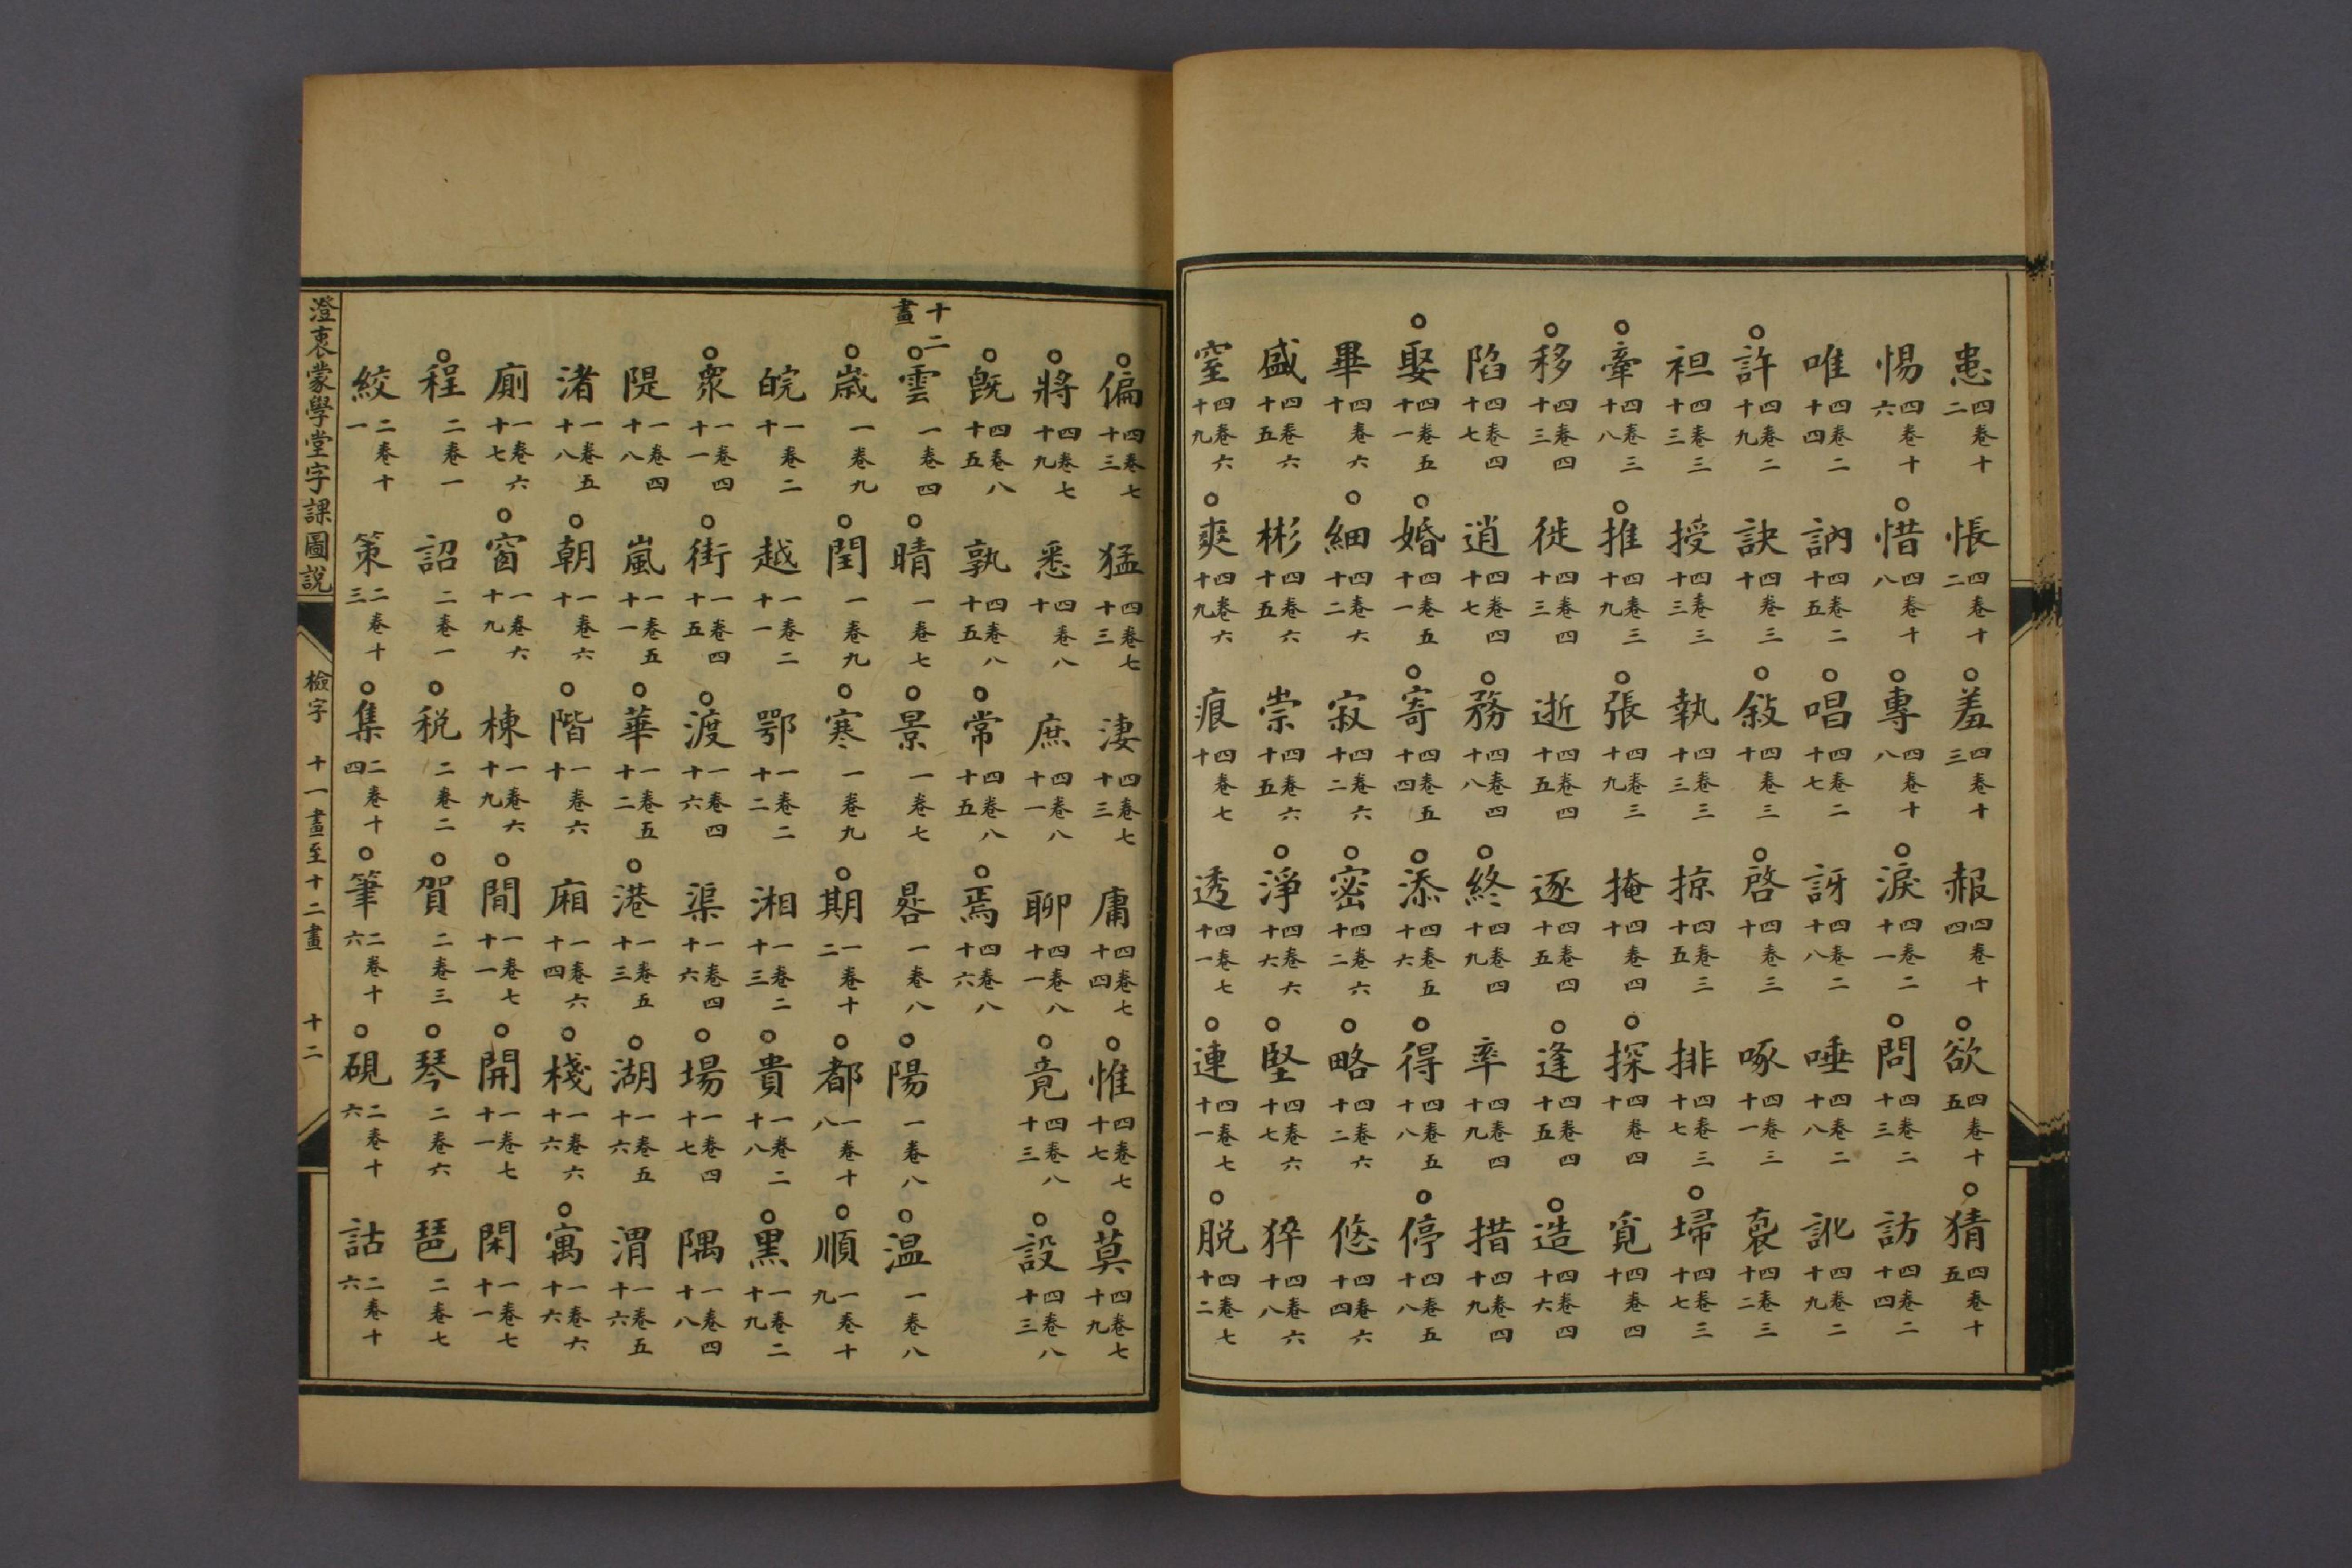 患四卷十二 悵四卷十二 ○羞四卷十三 赧四卷十四 ○欲四卷十五 ○猜四卷十五
惕四卷十六 ○惜四卷十八 ○專四卷十八 ○淚四卷二十一 ○問四卷二十三 訪四卷二十四
唯四卷二十四 訥四卷二十五 ○唱四卷二十七 訝四卷二十八 唾四卷二十八 訛四卷二十九
○許四卷二十九 訣四卷三十 ○敍四卷三十 ○啓四卷三十 啄四卷三十一 袤四卷三十二
袒四卷三十三 授四卷三十三 執四卷三十三 掠四卷三十五 排四卷三十七 ○埽四卷三十七
○牽四卷三十八 ○推四卷三十九 ○張四卷三十九 掩四卷四十 ○探四卷四十 覓四卷四十
○移四卷四十三 徙四卷四十三 逝四卷四十五 逐四卷四十五 ○逢四卷四十五 ○造四卷四十六
陷四卷四十七 逍四卷四十七 ○務四卷四十八 ○終四卷四十九 率四卷四十九 措四卷四十九
○娶四卷五十一 ○婚四卷五十一 ○寄四卷五十四 ○添四卷五十六 ○得四卷五十八 ○停四卷五十八
畢四卷六十 ○細四卷六十二 寂四卷六十二 ○密四卷六十二 ○略四卷六十二 悠四卷六十四
盛四卷六十五 彬四卷六十五 崇四卷六十五 ○淨四卷六十六 ○堅四卷六十七 猝四卷六十八
窒四卷六十九 ○爽四卷六十九 痕四卷七十 透四卷七十一 ○連四卷七十一 ○脫四卷七十二
○偏四卷七十三 猛四卷七十三 淒四卷七十三 庸四卷七十四 ○惟四卷七十七 ○莫四卷七十九
○將四卷七十九 悉四卷八十 庶四卷八十一 聊四卷八十一 ○竟四卷八十三 ○設四卷八十三
○旣四卷八十五 孰四卷八十五 ○常四卷八十五 ○焉四卷八十六
十二畫
○雲一卷四 ○晴一卷七 ○景一卷七 晷一卷八 ○陽一卷八 ○温一卷八
○歲一卷九 ○閏一卷九 ○寒一卷九 ○期一卷十二 ○都一卷十八 ○順一卷十九
皖一卷二十 越一卷二十一 鄂一卷二十二 湘一卷二十三 ○貴一卷二十八 ○黑一卷二十九
○衆一卷四十一 ○街一卷四十五 ○渡一卷四十六 渠一卷四十六 ○場一卷四十七 隅一卷四十八
隄一卷四十八 嵐一卷五十一 ○華一卷五十二 ○港一卷五十三 ○湖一卷五十六 渭一卷五十六
渚一卷五十八 ○朝一卷六十 ○階一卷六十 廂一卷六十四 ○棧一卷六十六 ○寓一卷六十六
廁一卷六十七 ○窗一卷六十九 棟一卷六十九 ○間一卷七十一 ○開一卷七十一 閑一卷七十一
○程二卷一 詔二卷一 ○税二卷二 ○賀二卷三 ○琴二卷六 琶二卷七
絞二卷十一 策二卷十三 ○集二卷十四 ○筆二卷十六 ○硯二卷十六 詁二卷十六
澄衷蒙學堂字課圖說 檢字 十一畫至十二畫 十二